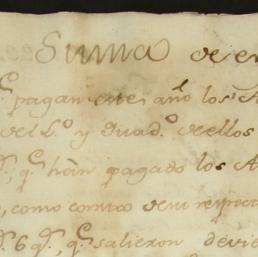 Suma de en
q.e pagan este año los A
del L.o y Quad.o dellos
q.e han pagado los A
como consta de su respect
6 q.s, q.e salieron devie